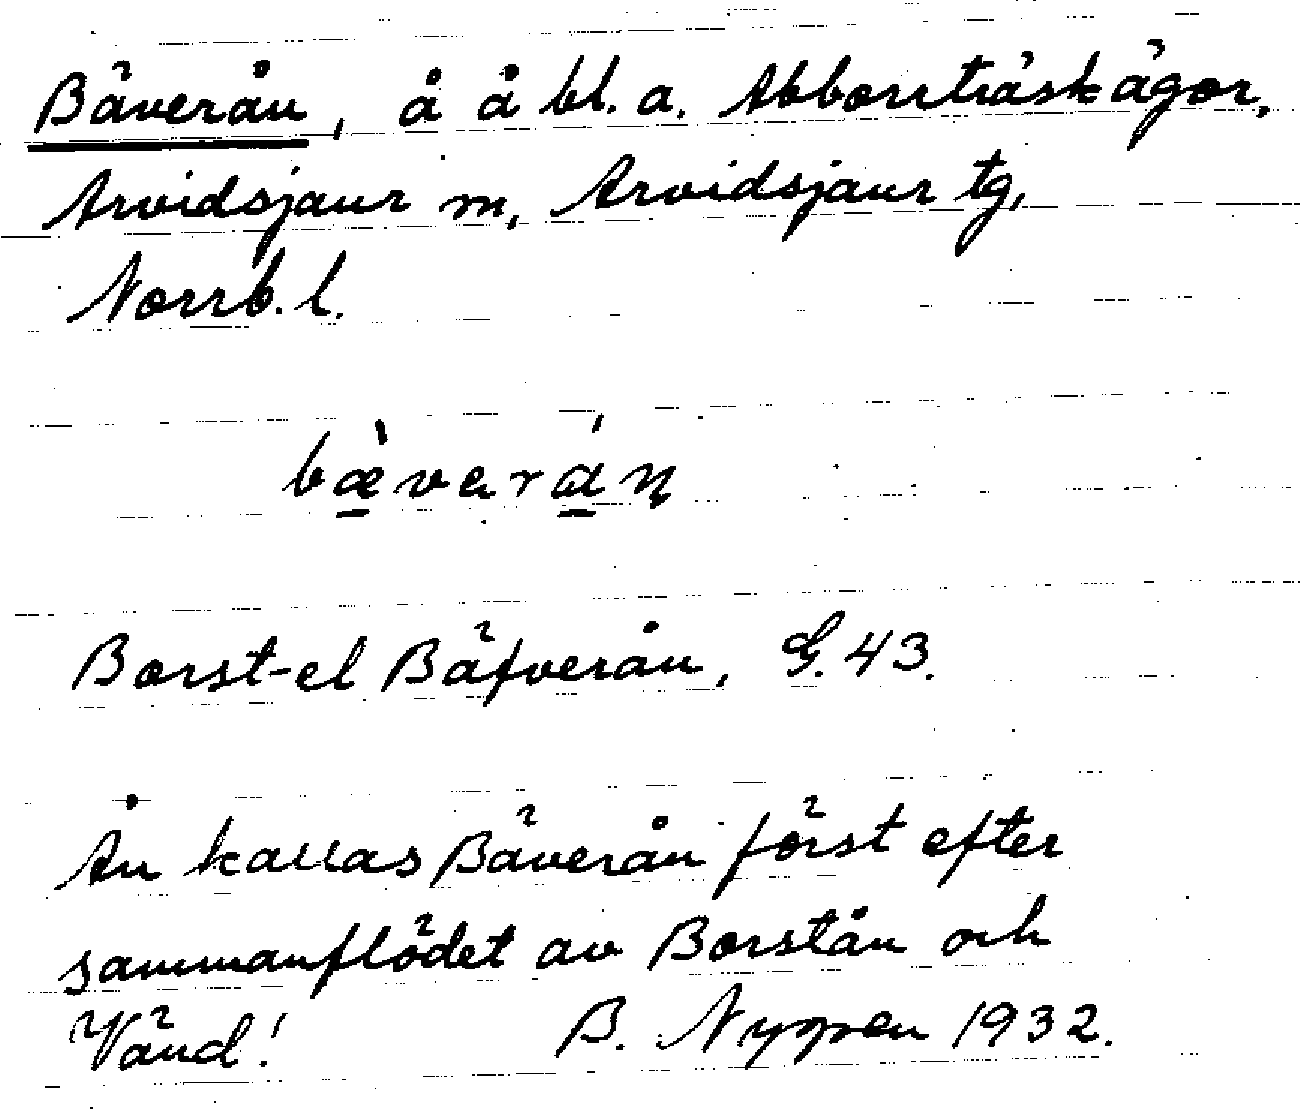 Bäverån, å å bl. a. Abborrträskägor,
Arvidsjaur m, Arvidsjaur tg,
Norrb. l.
bæ̀verán
Borst- el Bäfverån, G. 43.
Ån kallas Bäverån först efter
sammanflödet av Borstån och
Vänd! B. Nygren 1932.